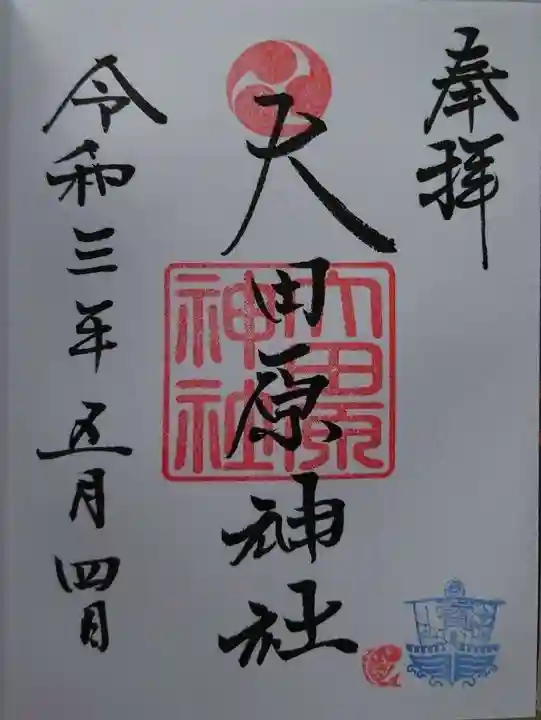 奉拝
大田原神社
大田原
神社
令和三年五月四日
寳